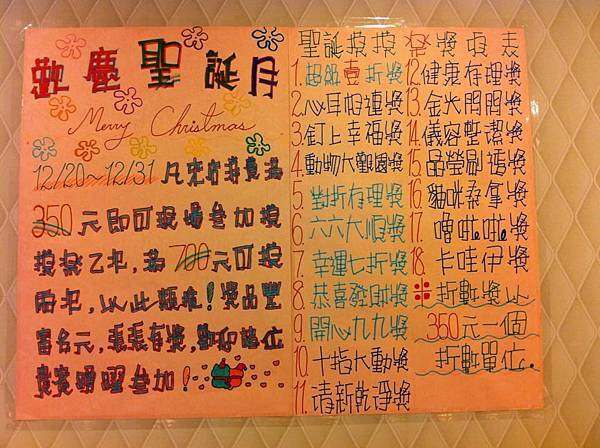 歡慶聖誕月
Merry Christmas
12/20~12/31 凡來店消費滿
350元即可現場參加摸
摸彩乙次,滿700元可摸
兩次,以此類推!獎品豐
富多元,張張有獎,歡迎諸位
貴賓踴躍參加!
聖誕摸摸彩獎項表
1.超級壹折獎
2.心耳相連獎
3.釘上幸福獎
4.動物大觀園獎
5.對折有理獎
6.六六大順獎
7.幸運七折獎
8.恭喜發財獎
9.開心九九獎
10.十指大動獎
11.清新乾淨獎
12.健康有理獎
13.金光閃閃獎
14.儀容整潔獎
15.晶瑩剔透獎
16.貓咪桑拿獎
17.嚕啦啦獎
18.卡哇伊獎
※折數獎以
350元一個
折數單位.